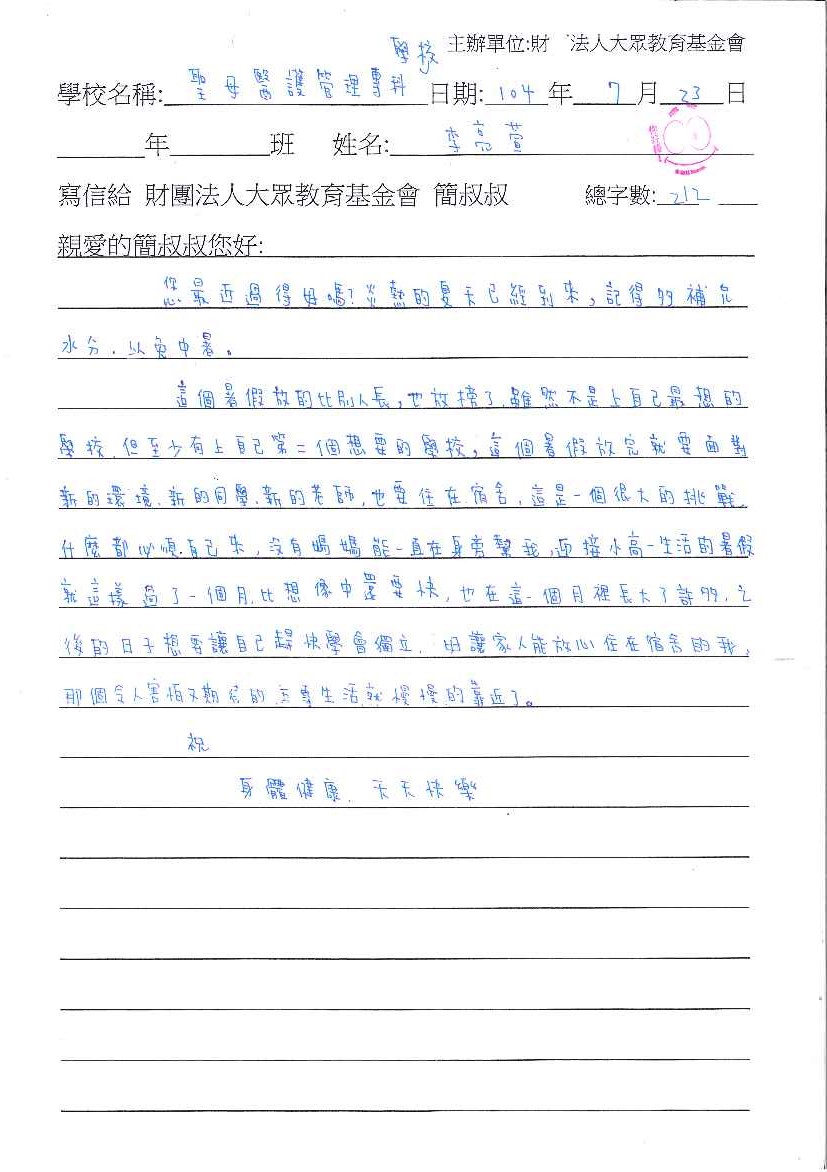 主辦單位:財　法人大眾教育基金會
學校名稱: 聖母醫護管理專科學校 日期: 104 年 7 月 23 日
年 班 姓名: 李亮萱
寫信給 財團法人大眾教育基金會 簡叔叔 總字數: 212
親愛的簡叔叔您好:
您最近過得好嗎?炎熱的夏天已經到來,記得多補充
水分,以免中暑。
這個暑假放的比別人長,也放榜了,雖然不是上自己最想的
學校,但至少有上自己第二個想要的學校,這個暑假放完就要面對
新的環境、新的同學、新的老師,也要住在宿舍,這是一個很大的挑戰,
什麼都必須自己來,沒有媽媽能一直在身旁幫我,迎接小高一生活的暑假
就這樣過了一個月,比想像中還要快,也在這一個月裡長大了許多,之
後的日子想要讓自己趕快學會獨立,好讓家人能放心住在宿舍的我,
那個令人害怕又期待的五專生活就慢慢的靠近了。
祝
身體健康、天天快樂